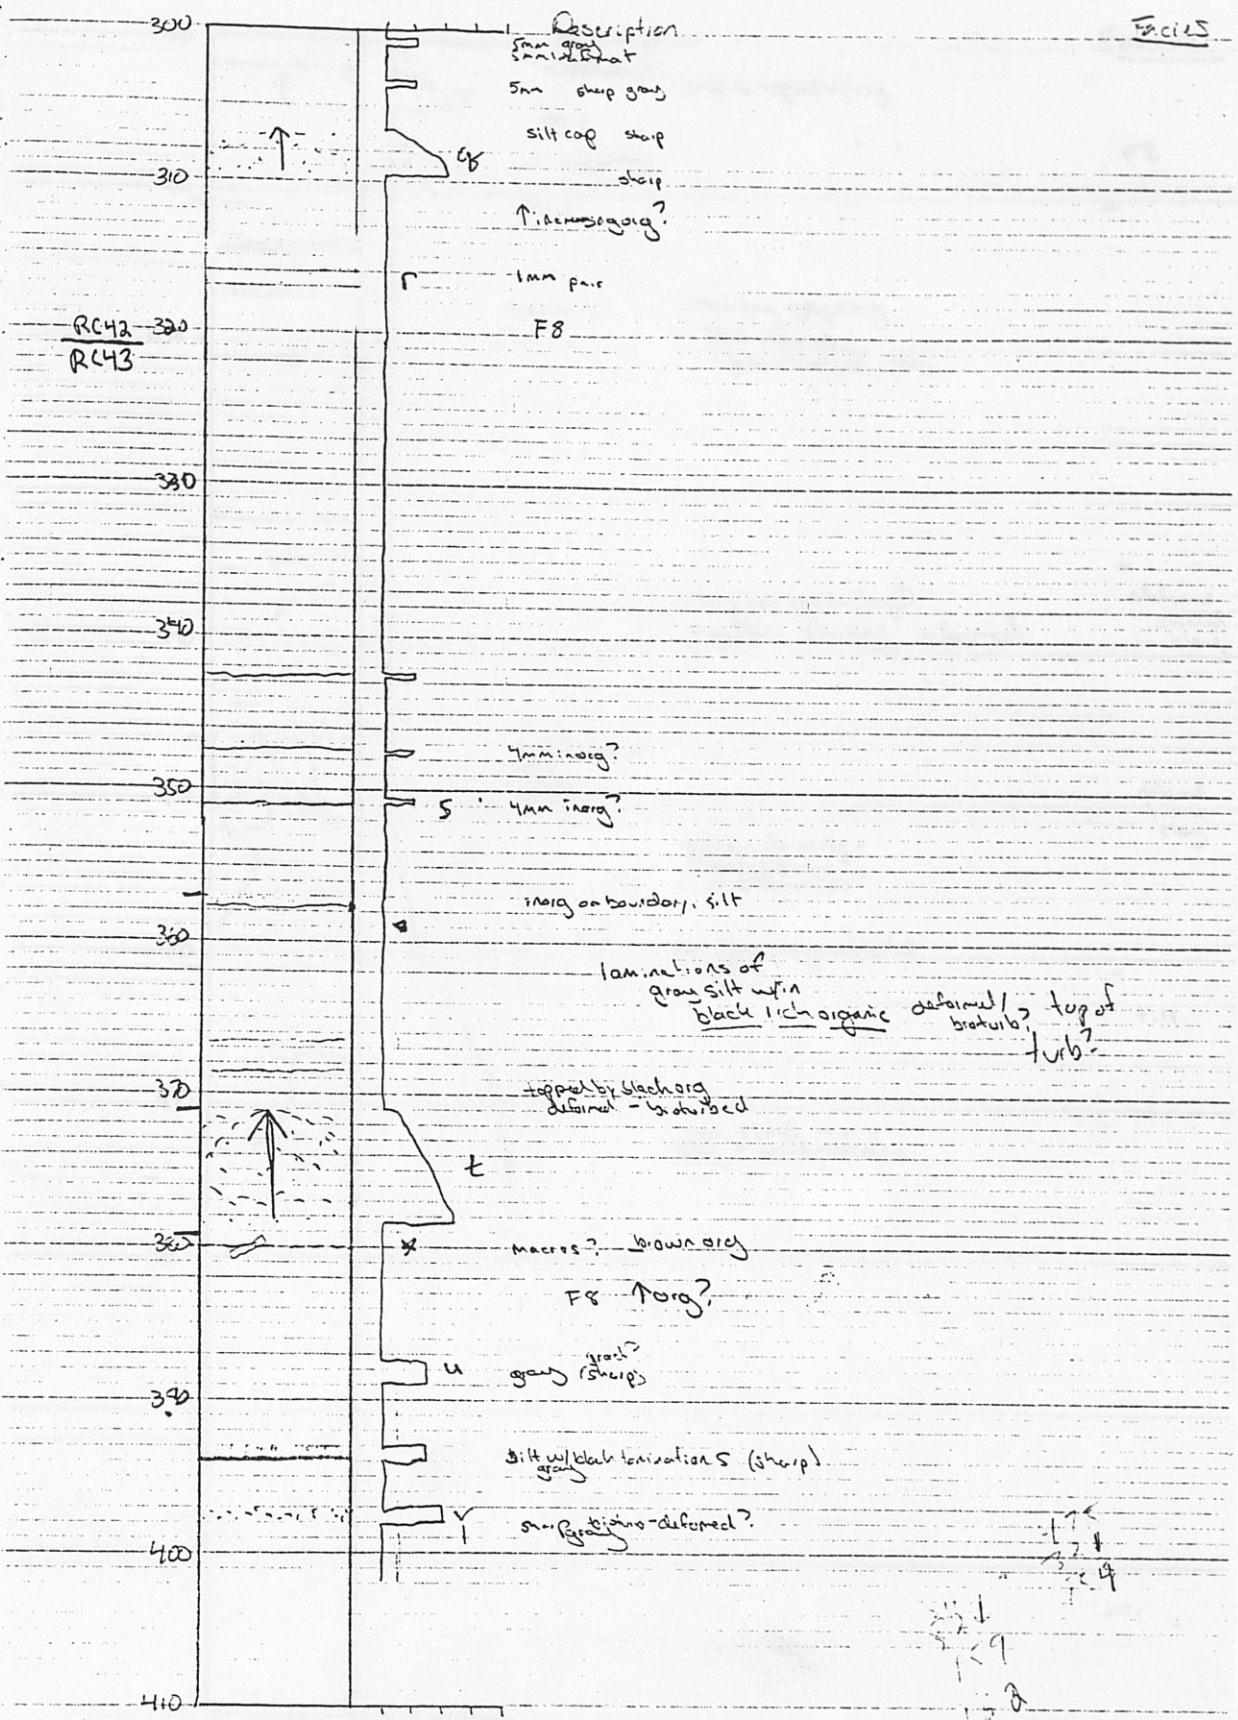 300 Description Facies
5mm gray
5mm
5mm sharp gray
silt cap sharp
310 sharp
↑ increasing org?
r 1mm pair
RC42 320 F8
RC43
330
340
4mm inorg?
350
s 4mm inorg?
inorg on boundary, silt
360
laminations of
gray silt w/in
black rich organic deformed/ bioturb? top of
turb?
370 topped by black org
deformed - bioturbed
t
380 macros? brown org
F8 ↑org?
u gray (sharp)
390
silt w/ black laminations (sharp)
gray
v sharp gray deformed?
400
410